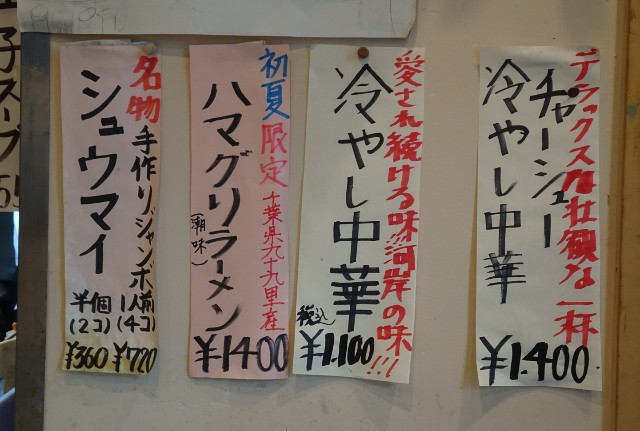 デラックスな壮観な一杯
チャーシュー
冷やし中華
¥1.400
愛され続ける味!!河岸の味!!!
冷やし中華
税込
¥1.100
初夏限定 千葉県九十九里産
ハマグリラーメン
(潮味)
¥1400
名物 手作りジャンボ
シュウマイ
1人前
(4コ)
¥720
半個
(2コ)
¥360
子スープ